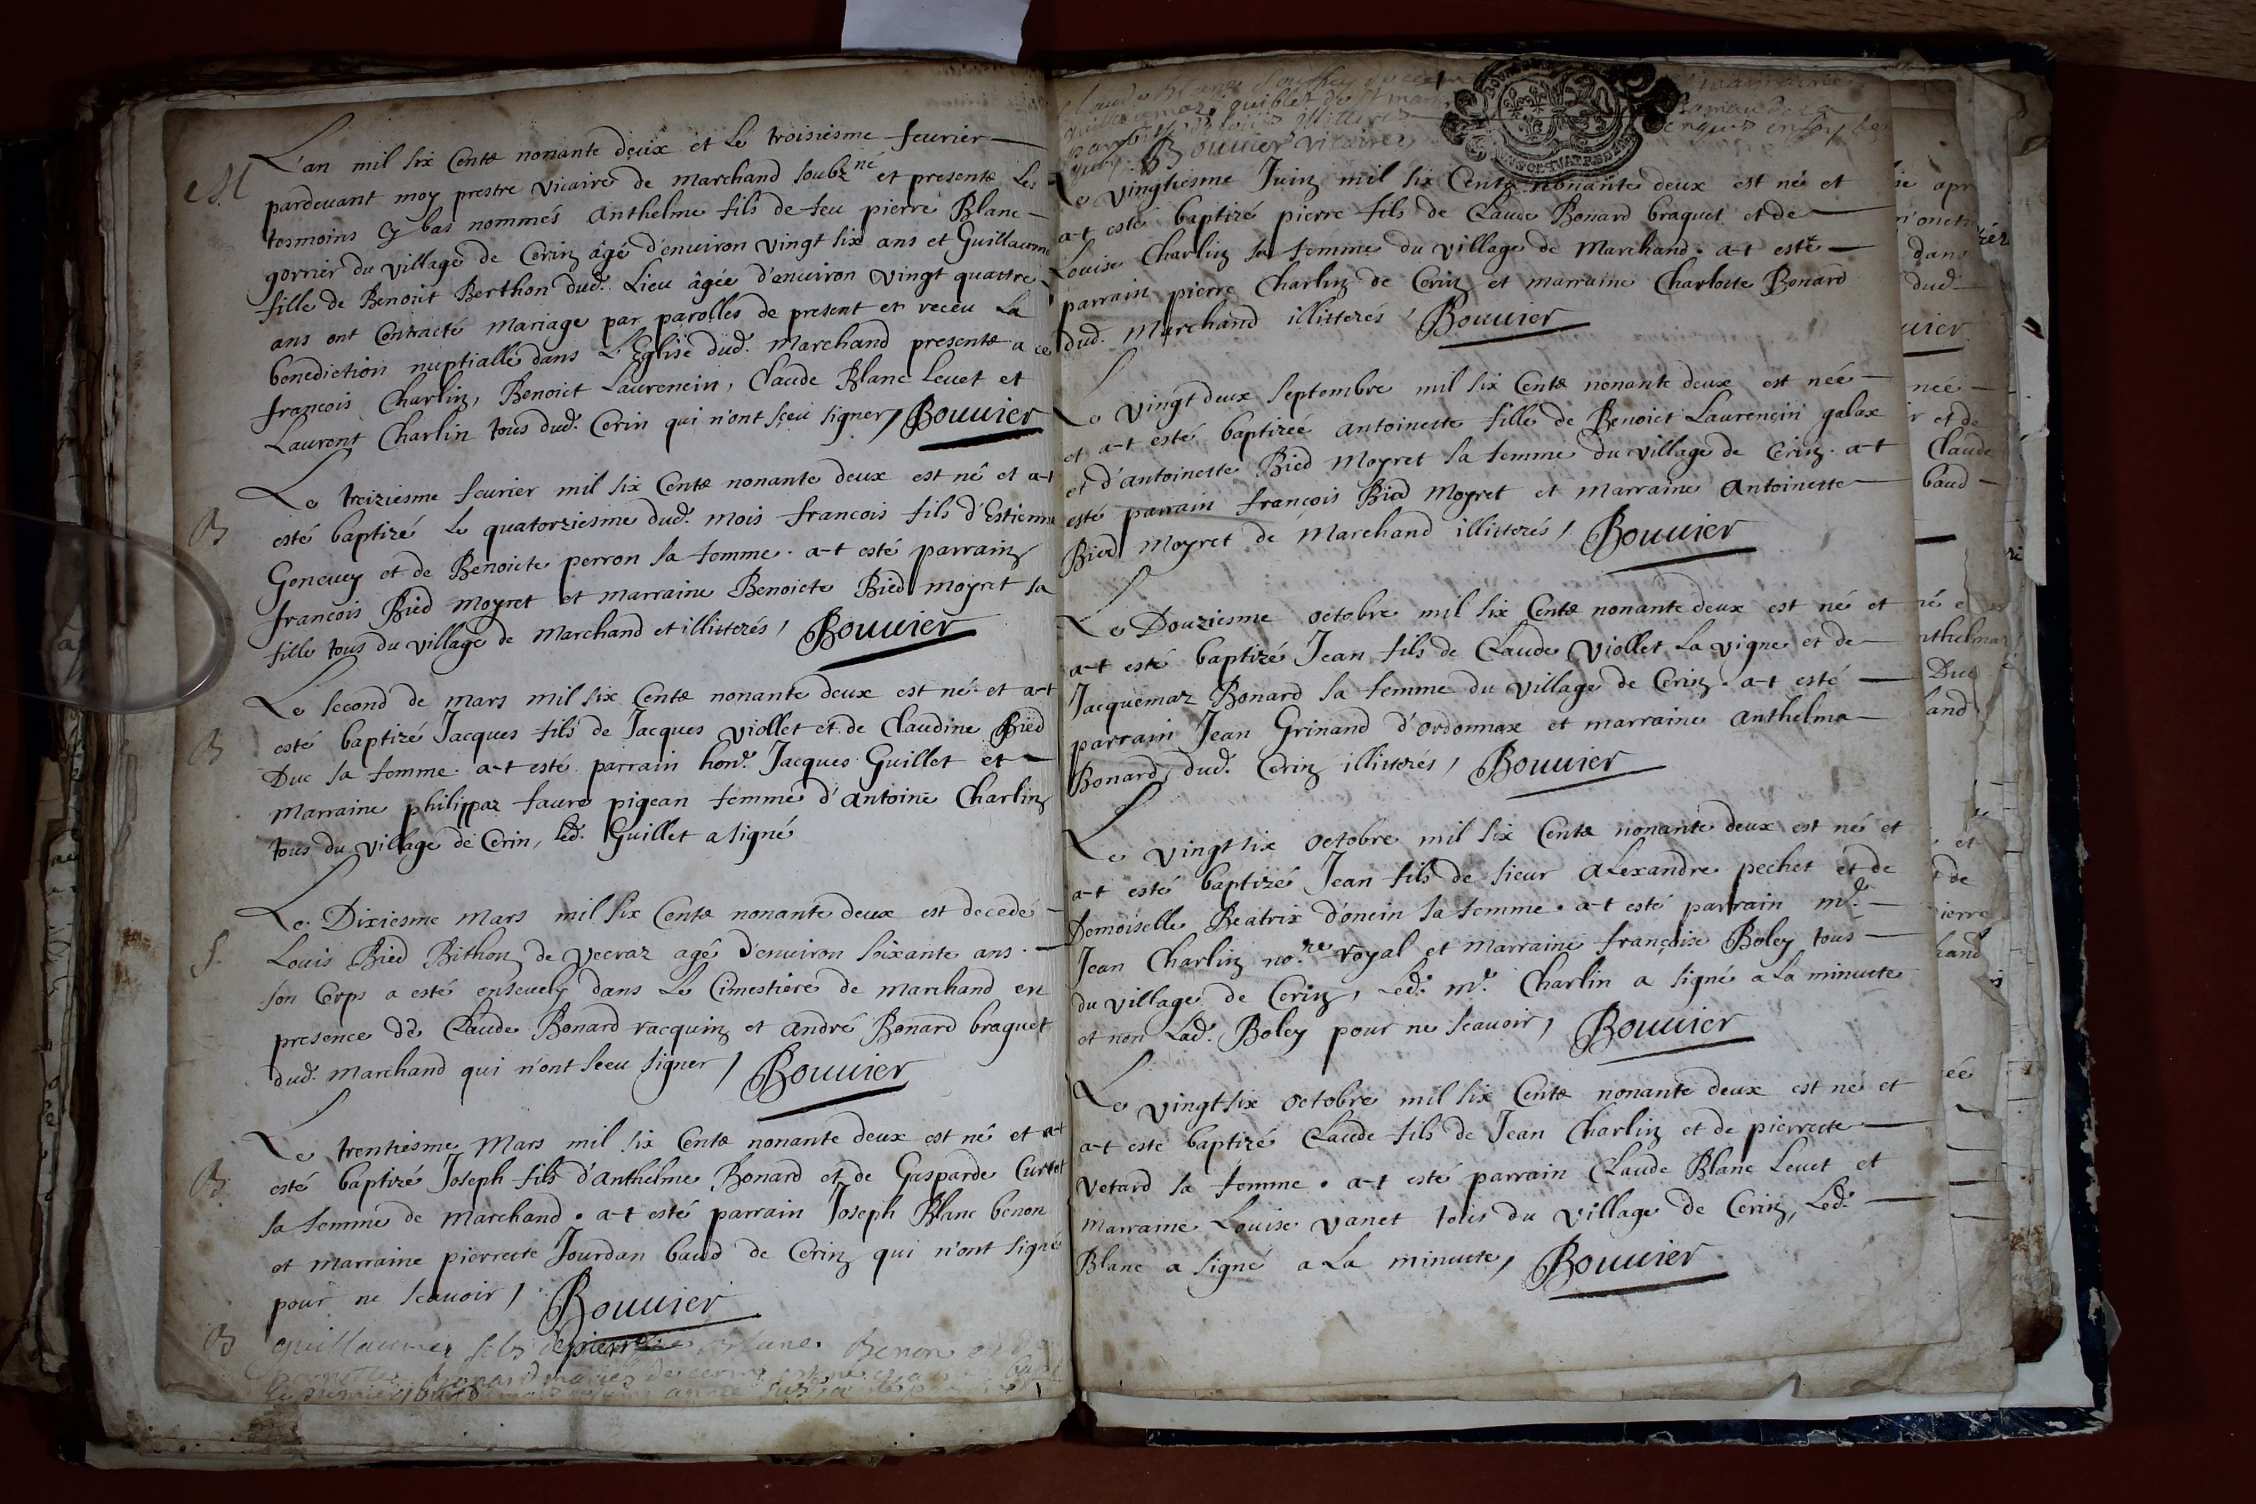 M
L'an mil six Centz nonante deux et Le troisiesme feurier
pardeuant moy prestre Vicaire de Marchand soubz.né et presentz Les
tesmoins Cy bas nommés Anthelme fils de feu pierre Blanc
gorrier du village de Cerin âgé d'enuiron vingt six ans et Guillauma
fille de Benoict Berthon dud. Lieu âgée d'enuiron vingt quattre
ans ont Contracté Mariage par parolles de present et receu La
benediction nuptialle dans L'Eglise dud. Marchand presentz a ce
francois Charlin, Benoict Laurencin, Claude Blanc Leuet et
Laurent Charlin tous dud. Cerin qui n'ont sçeu signer / Bouuier
B
Le treiziesme feurier mil six Centz nonante deux est né et a-t
esté baptizé Le quatorziesme dud. mois francois fils d'Estienne
Goneuey et de Benoicte perron sa femme. a-t esté parrain
francois Bied Moyret et marraine Benoicte Bied moyret sa
fille tous du village de Marchand et illitterés / Bouuier
B
Le second de mars mil six Centz nonante deux est né et a-t
esté baptizé Jacques fils de Jacques Viollet et de Claudine Bied
Duc sa femme. a-t esté parrain hon. Jacques Guillet et
Marraine philippaz faure pigean femme d'Antoine Charlin
tous du village de Cerin, Led. Guillet a signé
S.
Le Dixiesme Mars mil six Centz nonante deux est decedé
Louis Bied Bithon de Vecraz agé d'enuiron soixante ans.
son Corps a esté enseuely dans Le Cimestiere de Marchand en
presence de Claude Bonard racquin et André Bonard braquet
dud. Marchand qui n'ont sceu signer / Bouuier
B.
Le trentiesme Mars mil six Centz nonante deux est né et a-t
esté baptizé Joseph fils d'Anthelme Bonard et de Gasparde Curtet
sa femme de Marchand. a-t esté parrain Joseph Blanc benon
et Marraine pierrette Jourdan baud de Cerin qui n'ont signé
pour ne scauoir / Bouuier
B
guillaume fils de pierre blanc Benon
Bouuier vicaire
Le vingtiesme Juin mil six Centz nonante deux est né et
a-t esté baptizé pierre fils de Claude Bonard braquet et de
Louise Charlin sa femme du village de Marchand. a-t esté
parrain pierre Charlin de Cerin et marraine Charlotte Bonard
dud. Marchand illitterés / Bouuier
Le vingt deux Septembre mil six Centz nonante deux est née
et a-t esté baptizée Antoinette fille de Benoict Laurencin galax
et d'Antoinette Bied Moyret sa femme du village de Cerin. a-t
esté parrain francois Bied Moyret et Marraine Antoinette
Bied Moyret de Marchand illitterés / Bouuier
Le Douziesme octobre mil six Centz nonante deux est né et
a-t esté baptizé Jean fils de Claude Viollet La vigne et de
Jacquemaz Bonard sa femme du village de Cerin. a-t esté
parrain Jean Grinand d'Ordonnax et marraine Anthelma
Bonard dud. Cerin illitterés / Bouuier
Le vingt six octobre mil six Centz nonante deux est né et
a-t esté baptizé Jean fils de sieur Alexandre pechet et de
Demoiselle Beatrix d'oncin sa femme. a-t esté parrain m.e
Jean Charlin no.re royal et Marraine françoise Boley tous
du village de Cerin, Led. m.e Charlin a signé a La minutte
et non Lad. Boley pour ne scauoir / Bouuier
Le vingt six octobre mil six Centz nonante deux est né et
a-t esté baptizé Claude fils de Jean Charlin et de pierrette
Vetard sa femme. a-t esté parrain Claude Blanc Leuet et
Marraine Louise Vanet tous du village de Cerin, Led.
Blanc a signé a La minutte / Bouuier